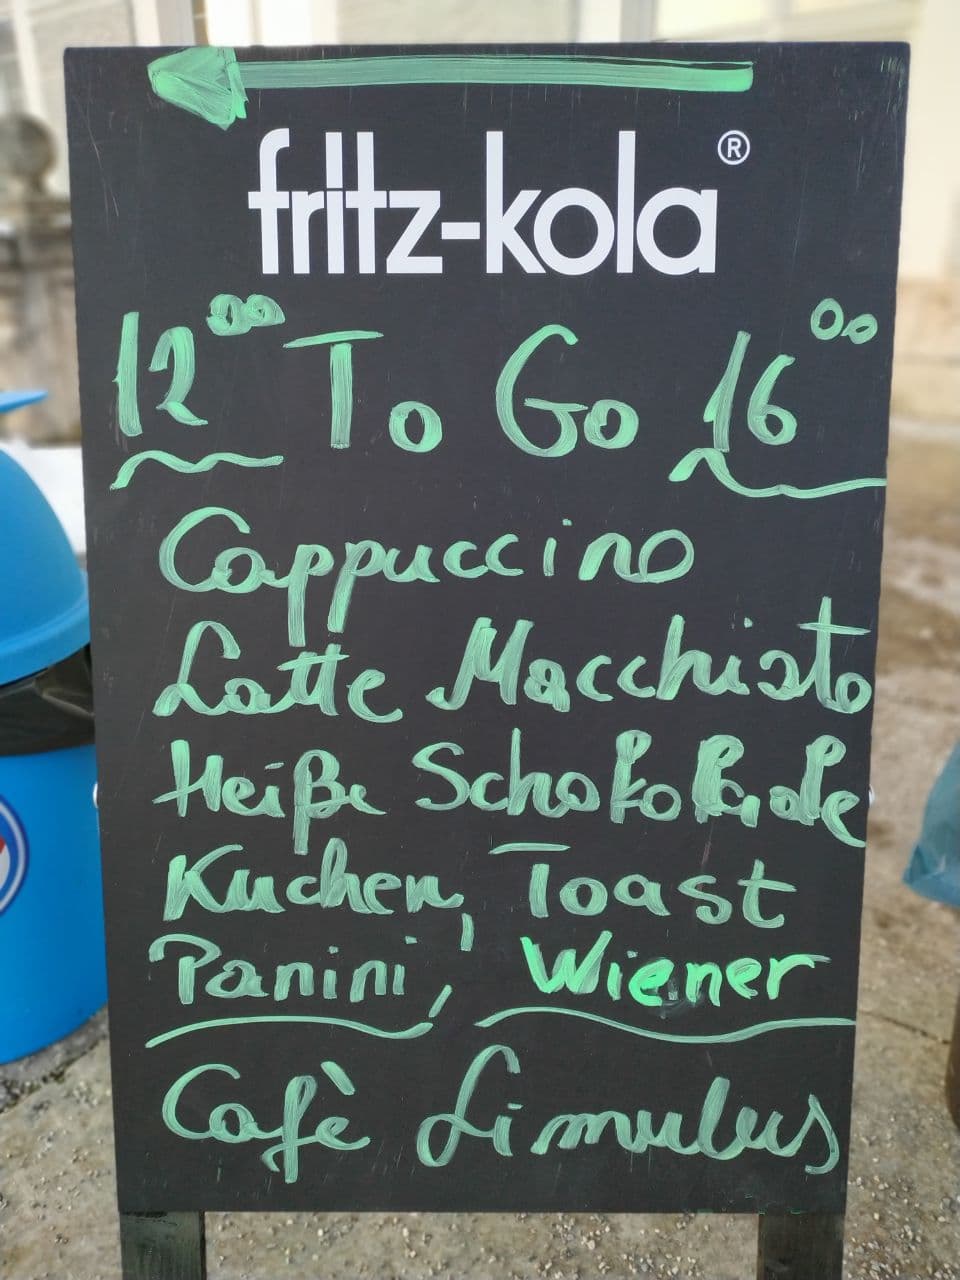 fritz-kola®
12⁰⁰ To Go 16⁰⁰
Cappuccino
Latte Macchiato
Heiße Schokolade
Kuchen, Toast
Panini, Wiener
Cafè Limulus